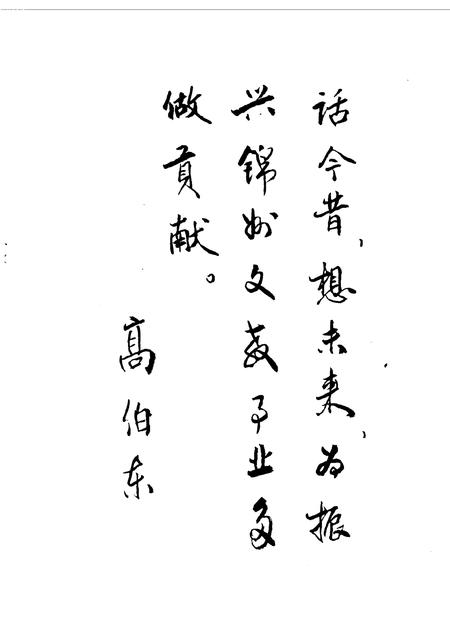 话今昔，想未来，为振
兴锦州文教事业多
做贡献。
高伯东